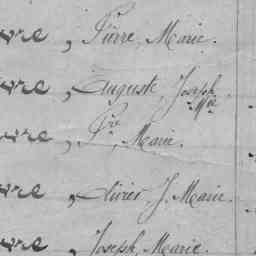 vre, Pierre, Marie.
vre, Auguste, Joseph, Mie
vre, Pre, Marie.
vre, Olivier, J. Marie.
vre, Joseph, Marie.